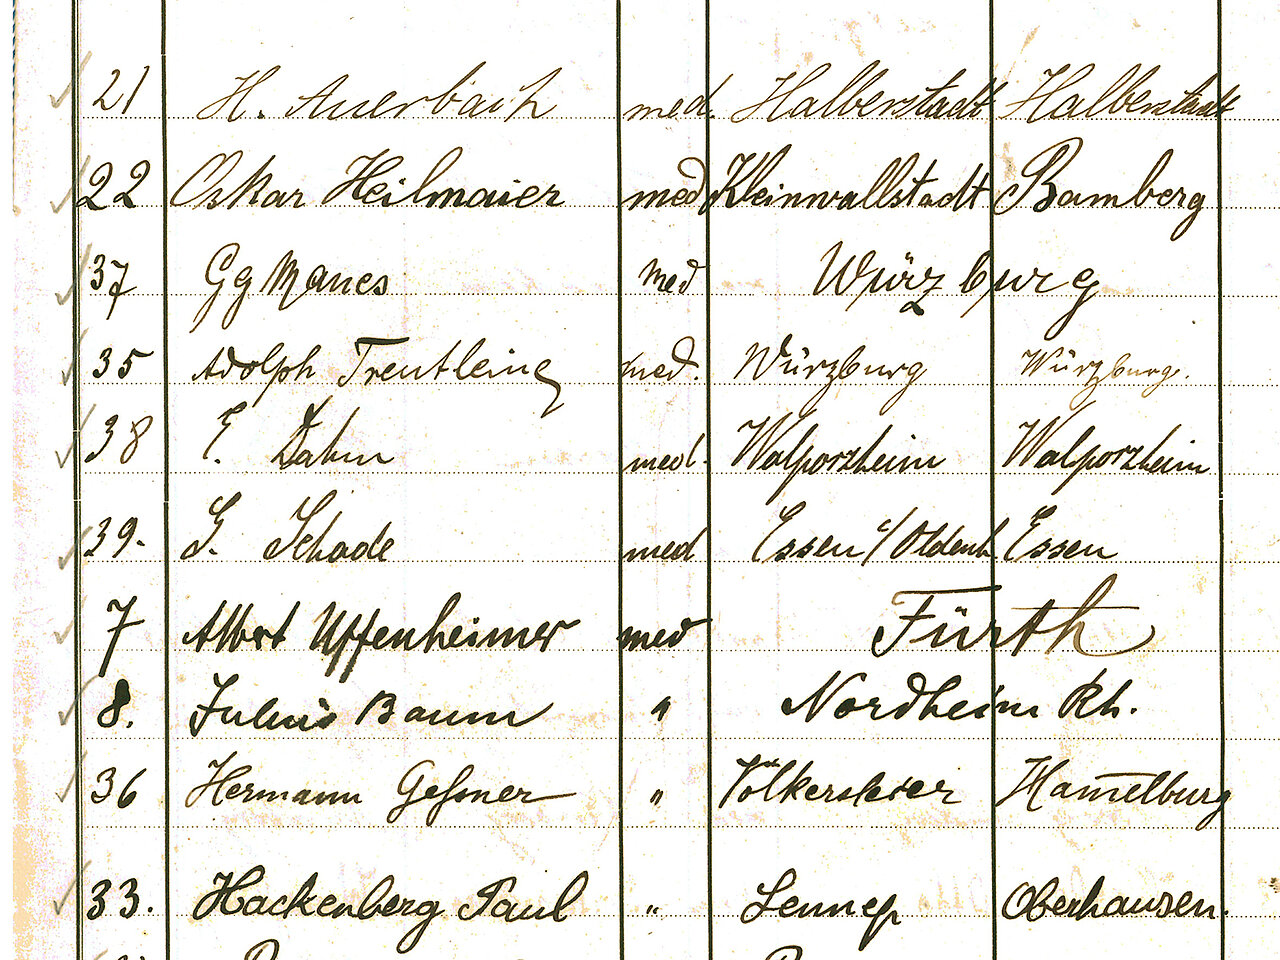 21 H. Auerbach med. Halberstadt Halberstadt
22 Oskar Heilmaier med Kleinwallstadt Bamberg
37 Gg Manes med Würzburg
35 Adolph Treutlein med. Würzburg Würzburg.
38 E. Dahm med. Walporzheim Walporzheim
39. G. Schade med Essen i/Oldenb. Essen
7 Albert Uffenheimer med Fürth
8. Julius Baum " Nordheim Rh.
36 Hermann Geßner " Völkersleier Hamelburg
33. Hackenberg Paul " Lennep Oberhausen.